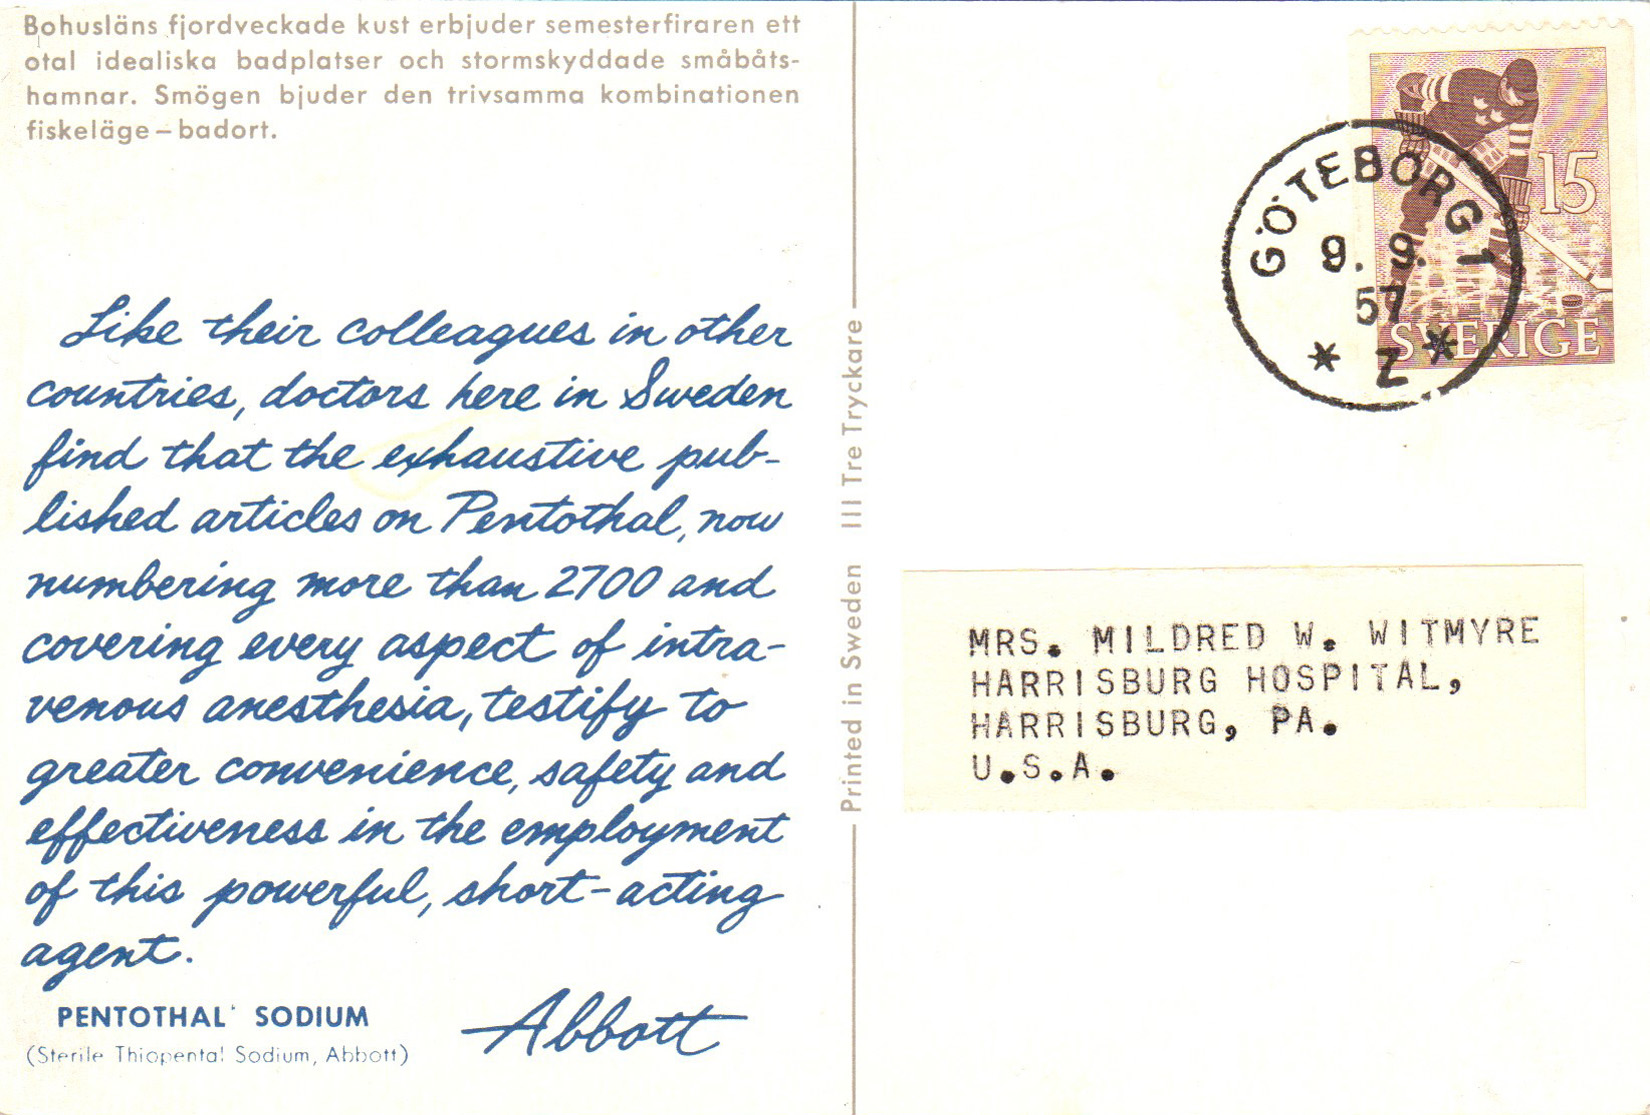 Bohusläns fjordveckade kust erbjuder semesterfiraren ett
otal idealiska badplatser och stormskyddade småbåts-
hamnar. Smögen bjuder den trivsamma kombinationen
fiskeläge – badort.
Like their colleagues in other
countries, doctors here in Sweden
find that the exhaustive pub-
lished articles on Pentothal, now
numbering more than 2700 and
covering every aspect of intra-
venous anesthesia, testify to
greater convenience, safety and
effectiveness in the employment
of this powerful, short-acting
agent.
PENTOTHAL SODIUM
(Sterile Thiopental Sodium, Abbott)
Abbott
Printed in Sweden III Tre Tryckare
15
SVERIGE
GÖTEBORG 1
9. 9.
57
* Z *
MRS. MILDRED W. WITMYRE
HARRISBURG HOSPITAL,
HARRISBURG, PA.
U.S.A.